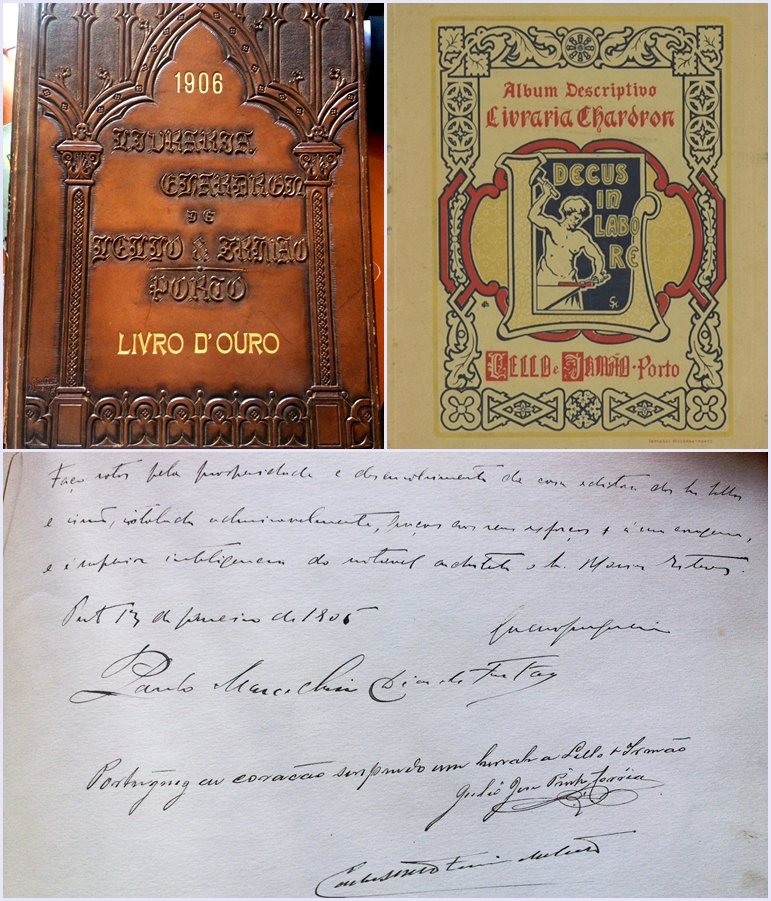 1906
LIVRARIA
CHARDRON
DE
LELLO & IRMÃO
PORTO
LIVRO D'OURO
Album Descriptivo
Livraria Chardron
DECUS
IN
LABO
RE
LELLO e IRMÃO-Porto
Faço votos pela prosperidade e desenvolvimento da casa editora dos Lello
e irmão, admiravelmente, aos seus esforços e á sua coragem,
e á superior intelligencia do notavel architecto o Sr.
Porto 13 de janeiro de 1906
Guerra Junqueiro
Paulo Marcellino Dias de Freitas
Portuguez coração um hurrah a Lello & Irmão
José Pinto Corrêa